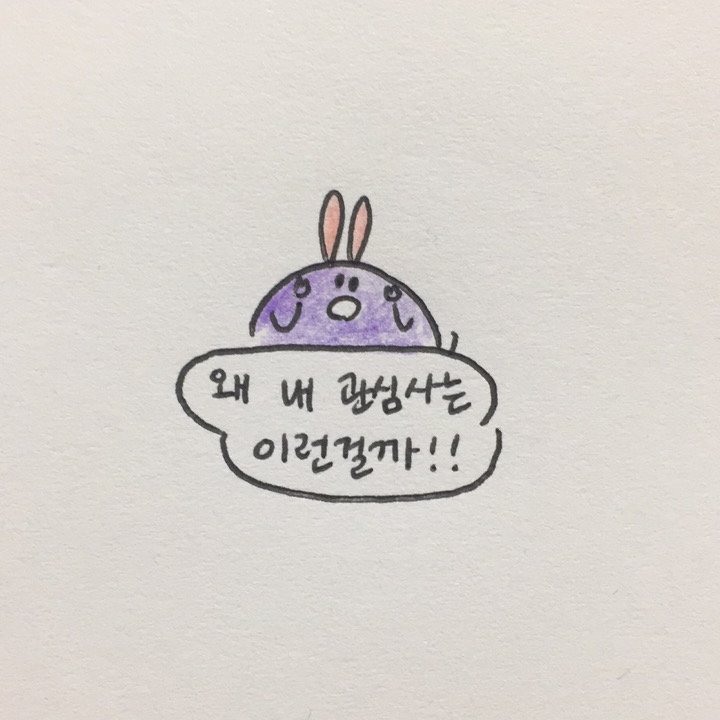 왜 내 관심사는
이런걸까!!